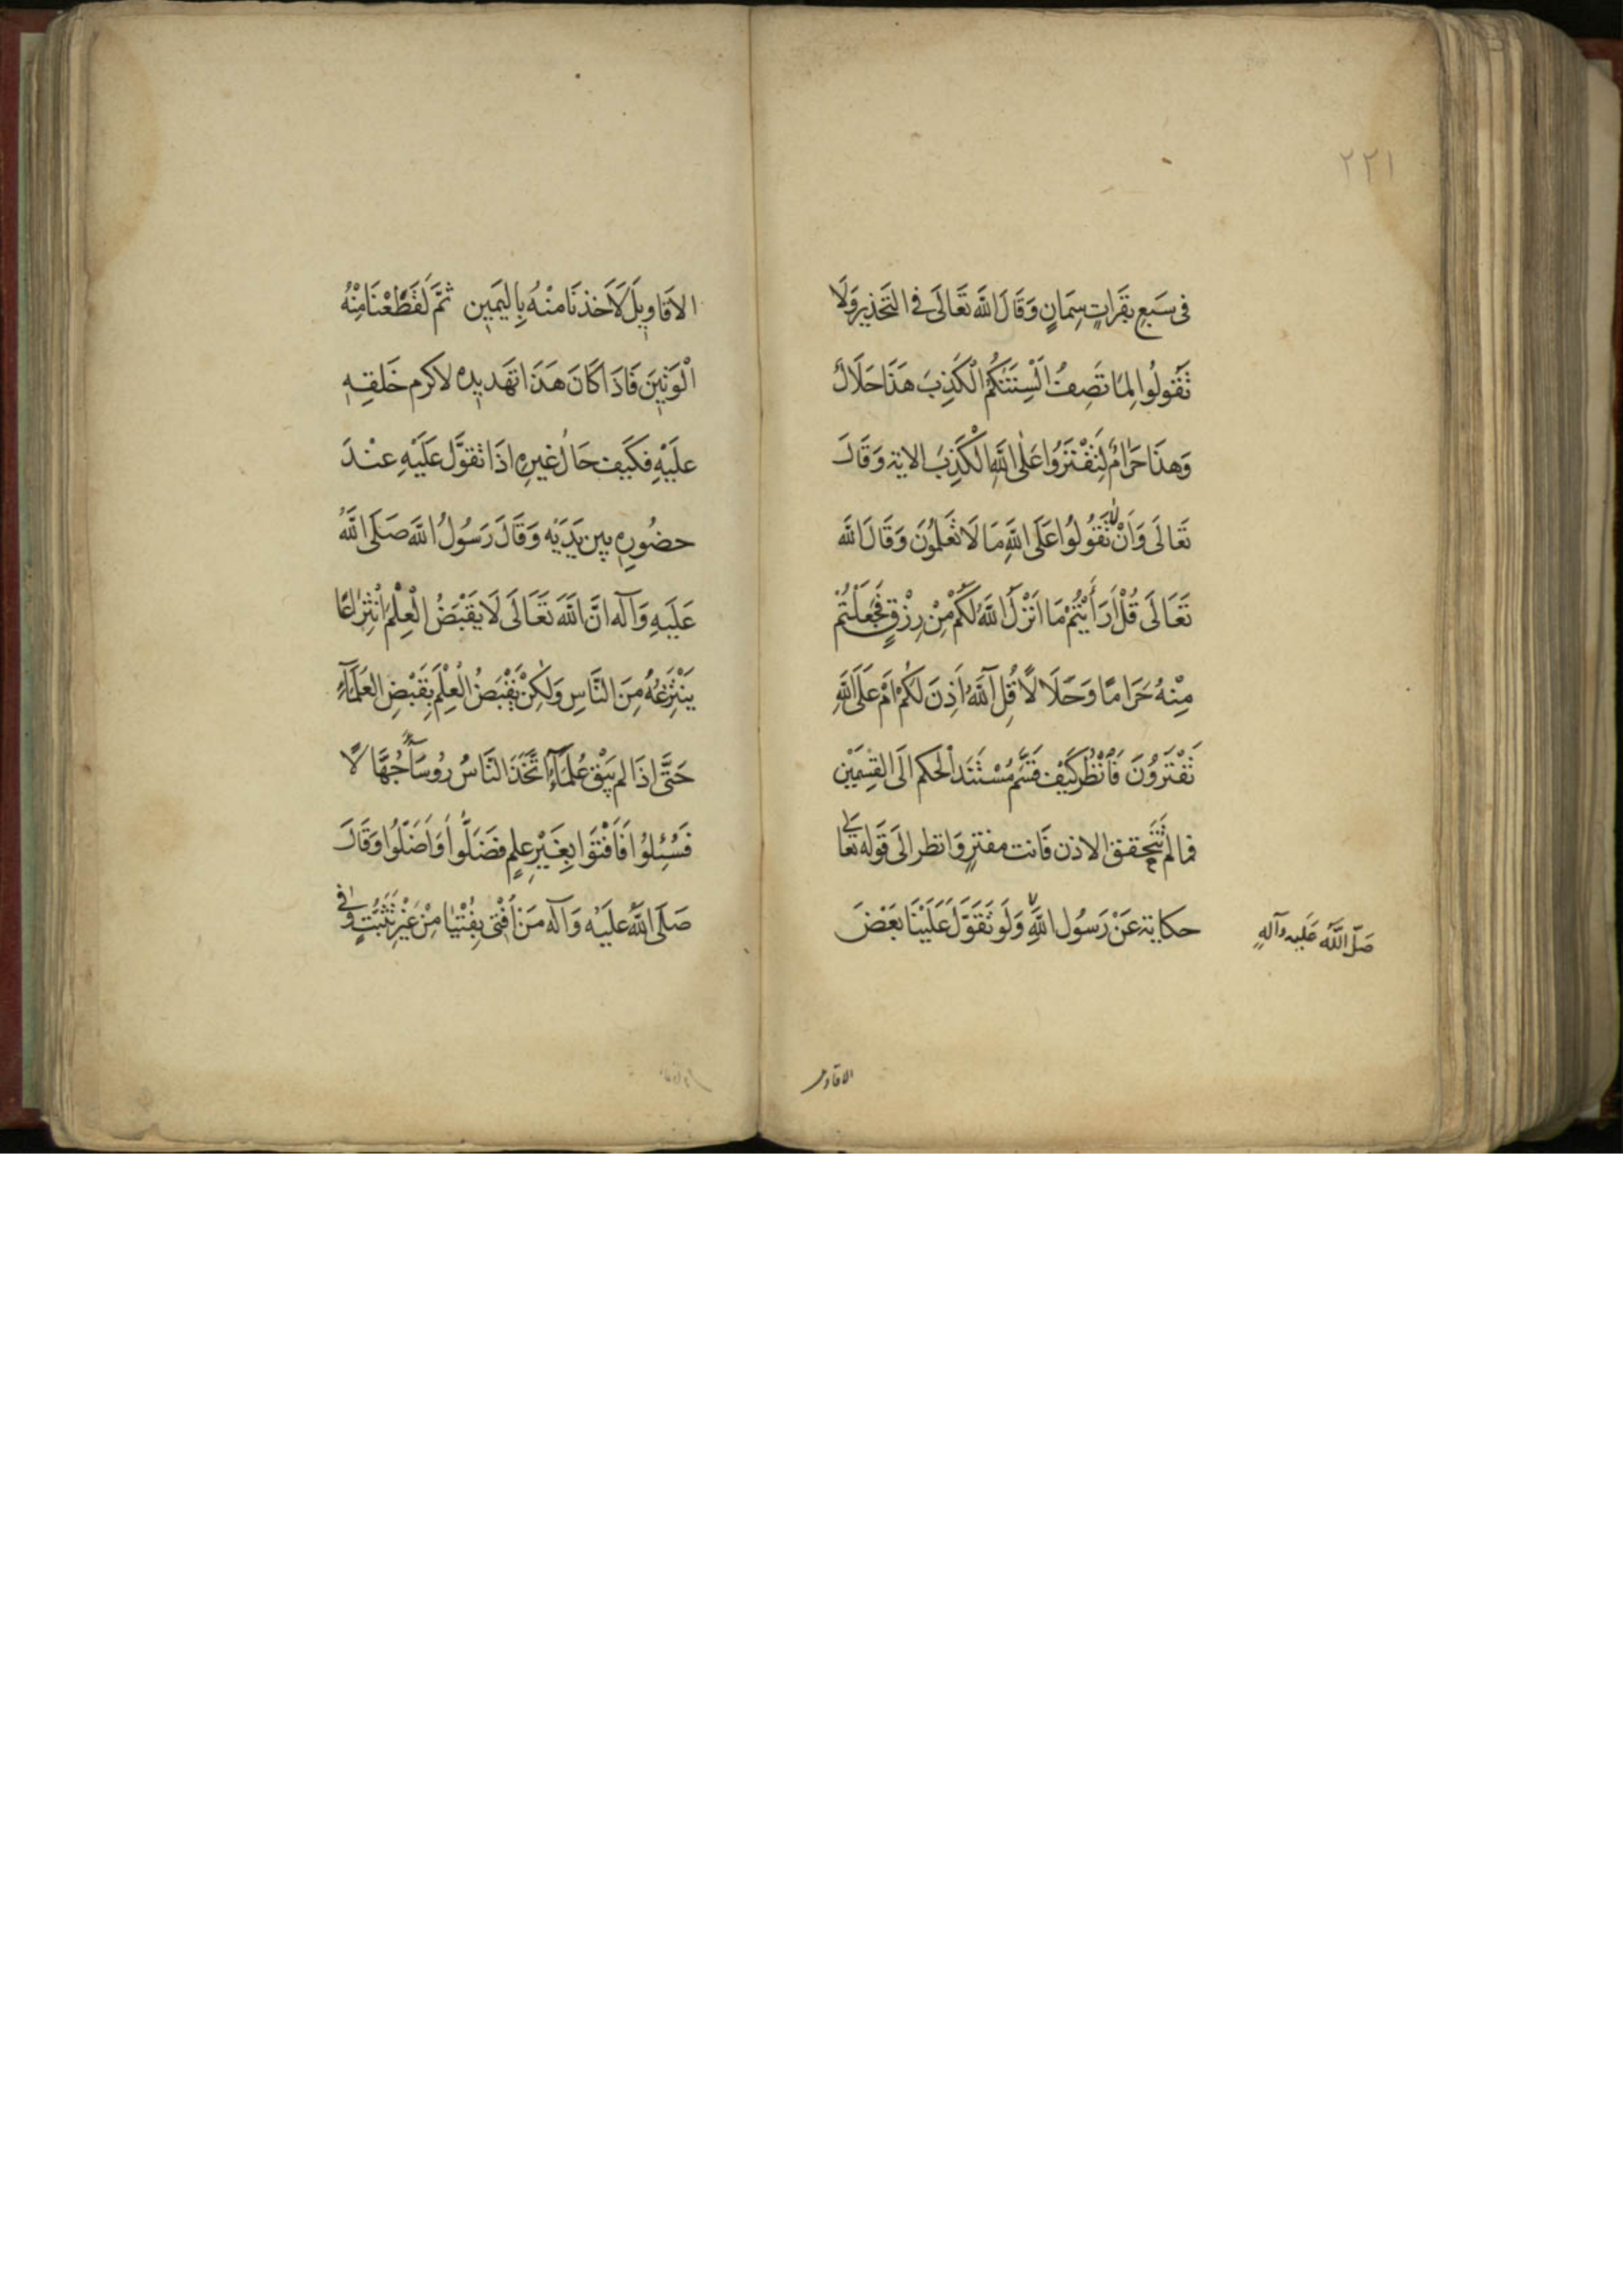 ٢٢١
فی سَبعِ بقَراتٍ سِمَانٍ وَقَالَ اللّٰه تَعَالَى فی التَحذیرِ وَلَا
تَقُولُوا لِمَا تَصِفُ اَلْسِنَتُكُمُ الْكَذِبَ هَذَا حَلَالٌ
وَهذَا حَرَامٌ لِتَفْتَرُوا عَلَى اللَّهِ الْكَذِبَ الایة وَقَالَ
تَعَالَى وَاَنْ تَقُولُوا عَلَى اللَّهِ مَا لَا تَعْلَمُونَ وَقَالَ اللّٰه
تَعَالَى قُلْ اَرَاَيْتُمْ مَا اَنْزَلَ اللَّهُ لَكُمْ مِنْ رِزْقٍ فَجَعَلْتُمْ
مِنْهُ حَرَامًا وَحَلَالًا قُلْ آللَّهُ اَذِنَ لَكُمْ اَمْ عَلَى اللَّهِ
تَفْتَرُونَ فَانْظُرْ كَيْفَ قَسَّمَ مُسْتَنَدَ الْحَكم الَى القِسمَیْن
فما لم تَتَحقق الاذن فَانت مفترٍ وَانظر الىَ قَوله تعَالى
حكایة عَنْ رَسُول اللَّهِ وَلَو تَقَوَّلَ عَلَيْنَا بَعْضَ
صَلّى اللَّه عَلیه وآلهِ
الاقاویل
الاَقَاویلَ لَاَخَذنَا منْهُ بِالیَمین ثمَّ لَقَطَعْنَا مِنْهُ
الْوَتینَ فَاذَا كَانَ هَذَا تهَدیده لاكرم خَلقِهِ
علَیْهِ فكَیفَ حَالُ غیرِهِ اذَا تقوَّل عَلَیْهِ عنْدَ
حضُورِهِ بین یَدَیْه وَقَالَ رَسُولُ اللَّه صَلَى اللَّهُ
عَلَیهِ وَآله انَّ اللَّهَ تَعَالَى لَا یَقْبَضُ الْعِلْمَ انْتِزَاعًا
یَنْتَزِعُهُ مِنَ النَّاسِ وَلٰكِنْ یَقْبَضُ الْعِلْمَ بِقَبْضِ العُلَمَآءِ
حَتَّى اذَا لم یَبْق عُلَمَآءُ اتَّخَذَ النَّاسُ رُوسَآءً جُهَّالًا
فَسُئِلوُا فَاَفْتَوَا بِغَیْرِ علِمٍ فضَلَّوا وَاَضَلّوُا وَقَالَ
صَلَى اللَّهُ علَیْه وَآله مَنْ اَفْتى بِفُتْیَا مِنْ غَیْرِ تَثَبُّتٍ وَفی